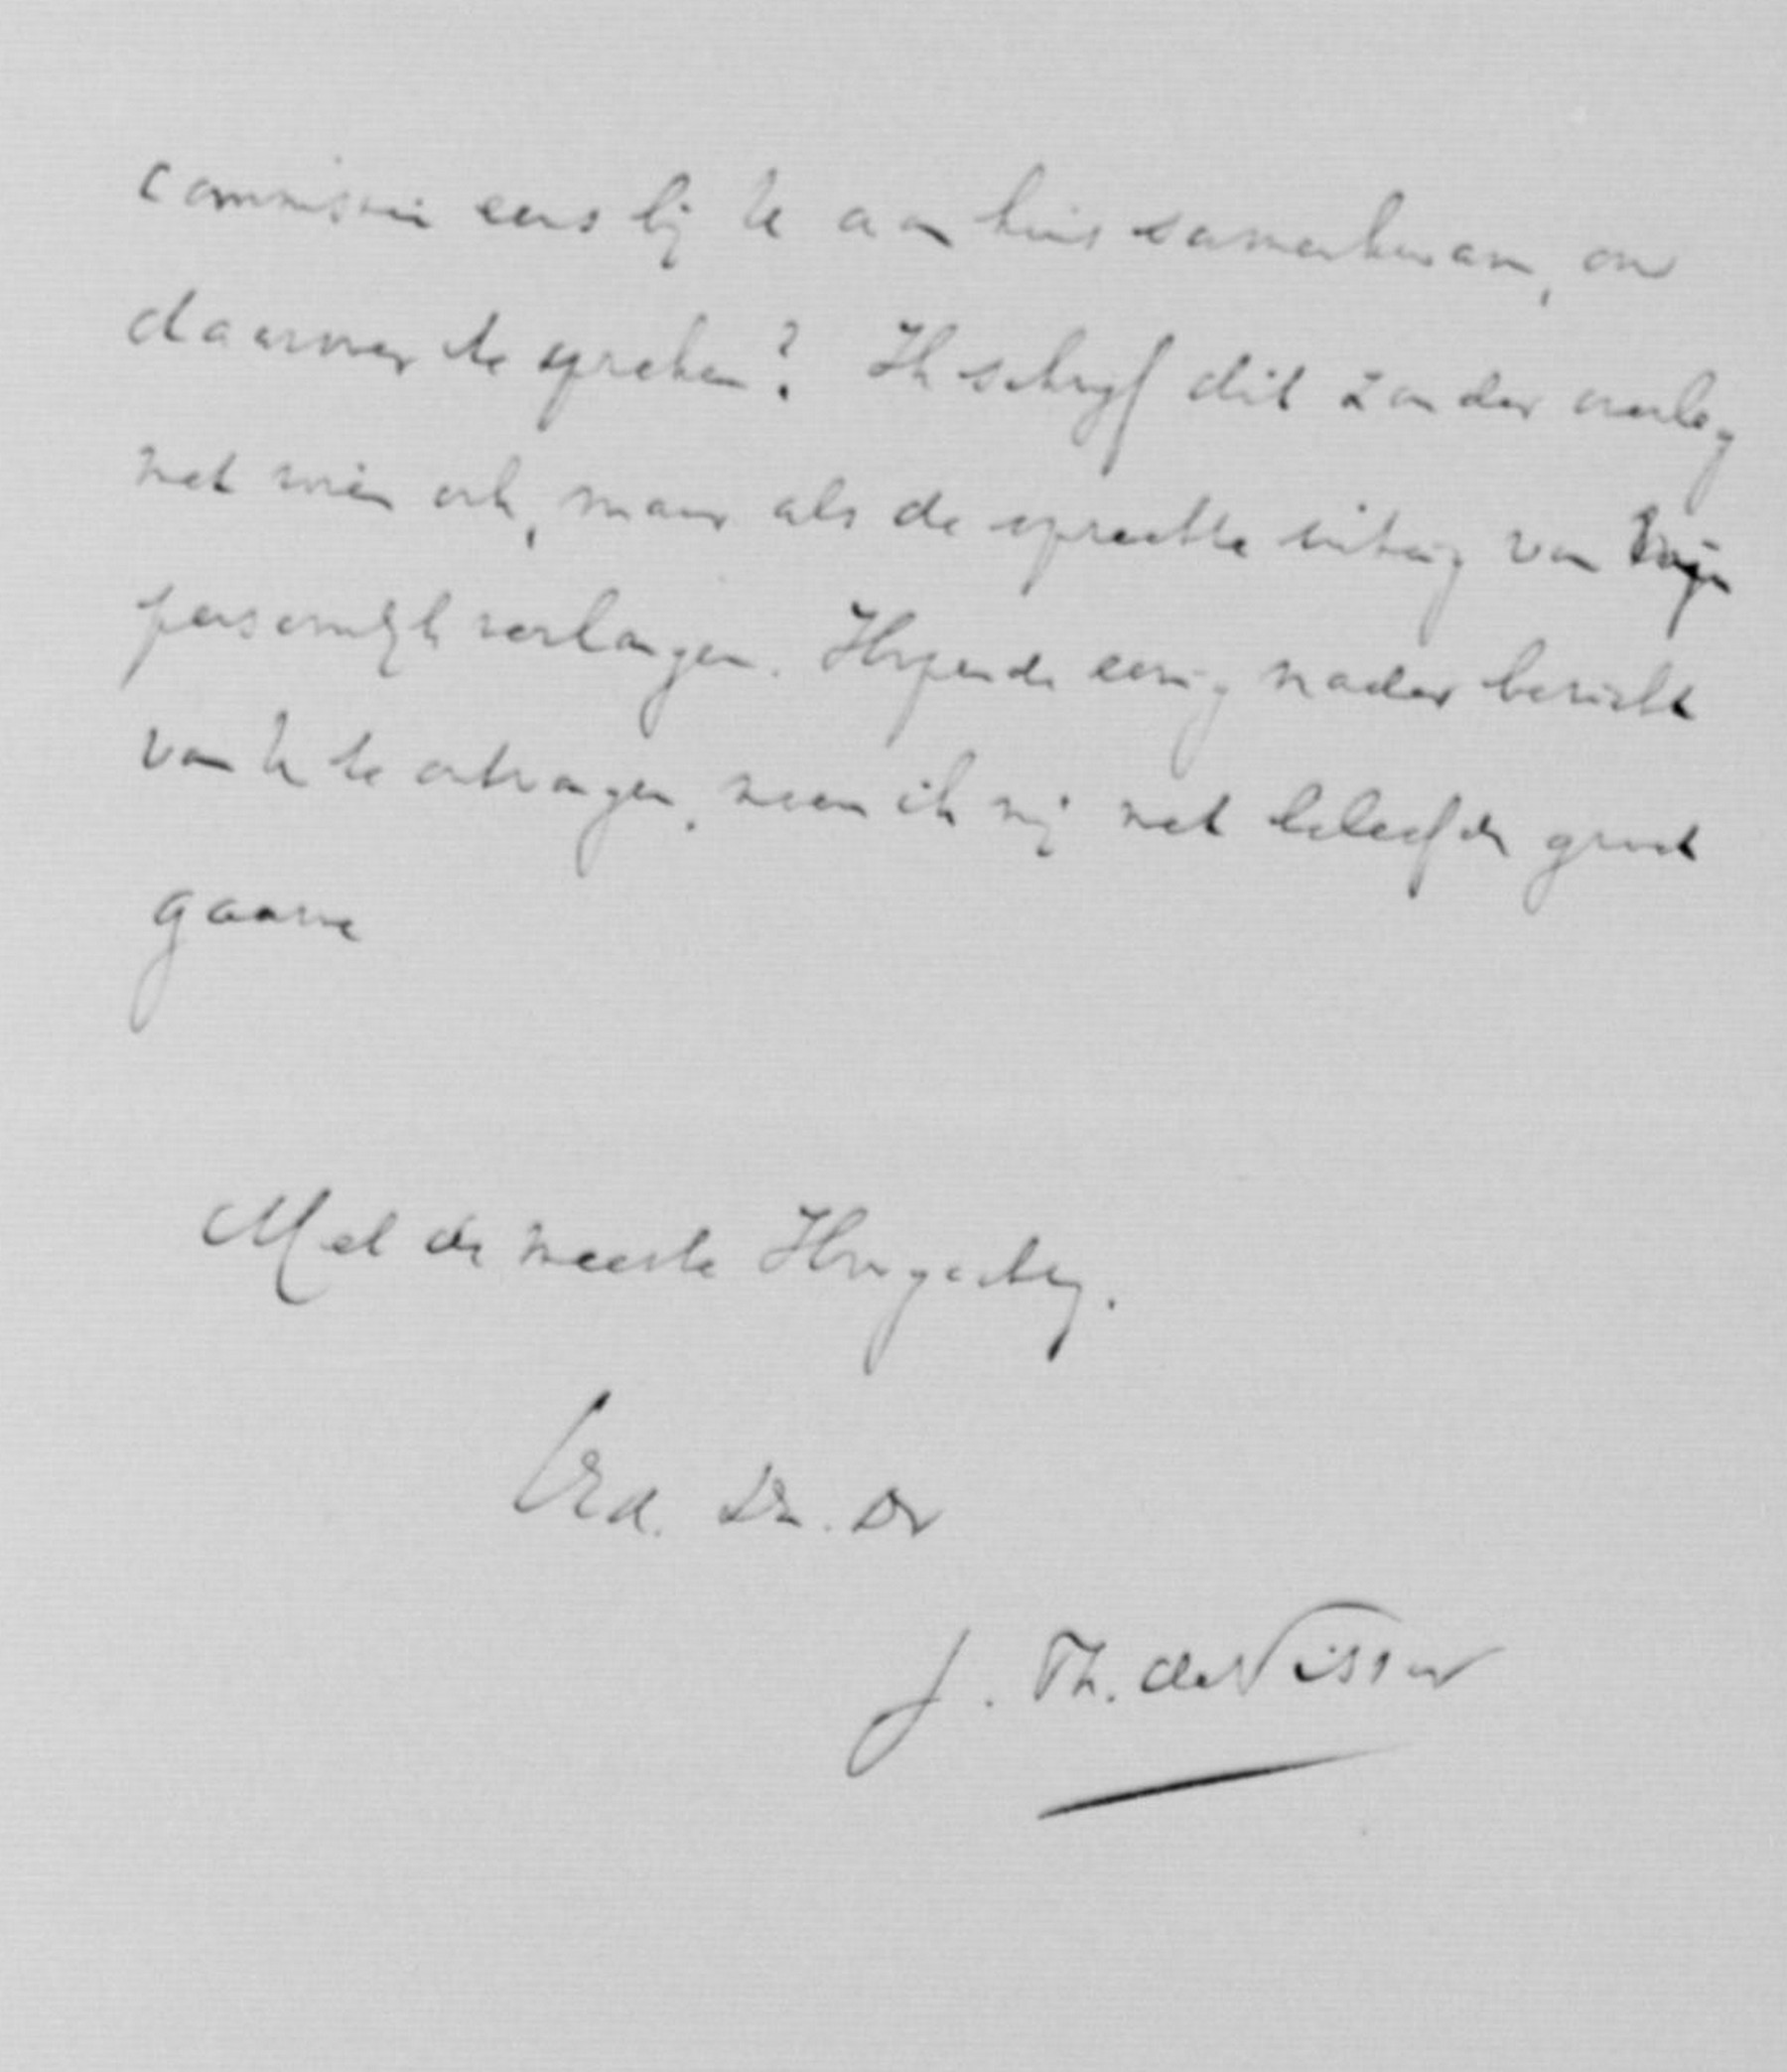 commissie eens bij U aan huis samenkwam, om
daarover te spreken? Ik schrijf dit zonder overleg
met wien ook, maar als de oprechte uiting van mijn
persoonlijk verlangen. Hopende eenig nader bericht
van U te ontvangen, noem ik mij met beleefde groet
gaarne
Met de meeste Hoogachtg.
Uwd. Dr.
J. Th. de Visser